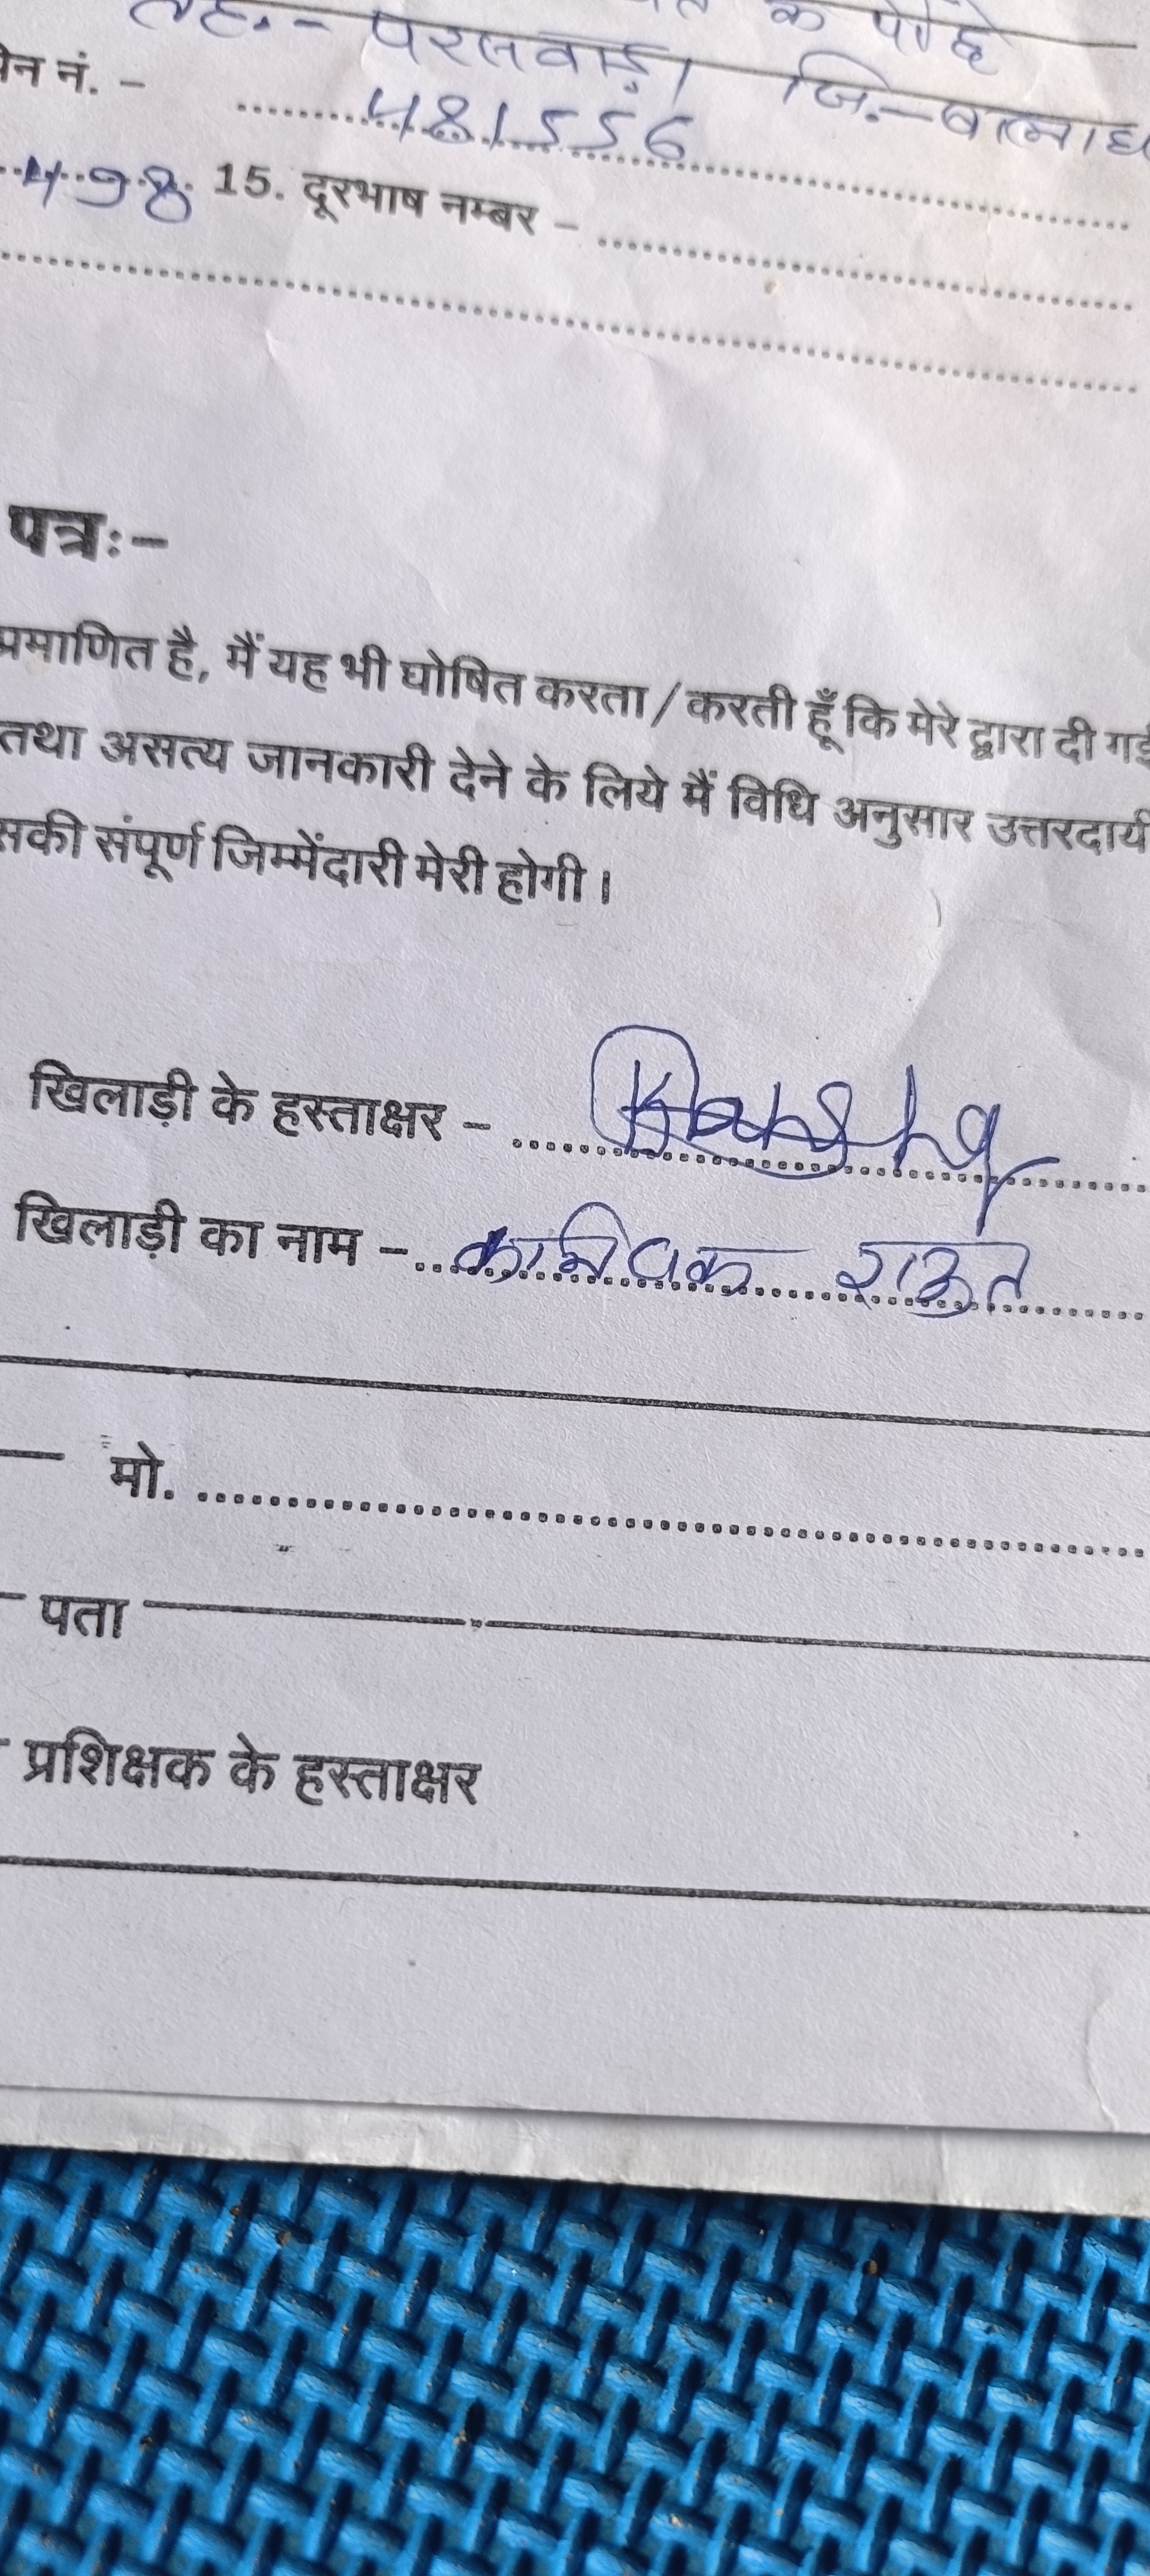 तह.- परसवाड़ा जि.- बालाघ
पिन नं. - 481556
498 15. दूरभाष नम्बर -
पत्रः-
प्रमाणित है, मैं यह भी घोषित करता / करती हूँ कि मेरे द्वारा दी गई
तथा असत्य जानकारी देने के लिये मैं विधि अनुसार उत्तरदायी
सकी संपूर्ण जिम्मेंदारी मेरी होगी।
खिलाड़ी के हस्ताक्षर -
खिलाड़ी का नाम - राऊत
मो.
पता
प्रशिक्षक के हस्ताक्षर